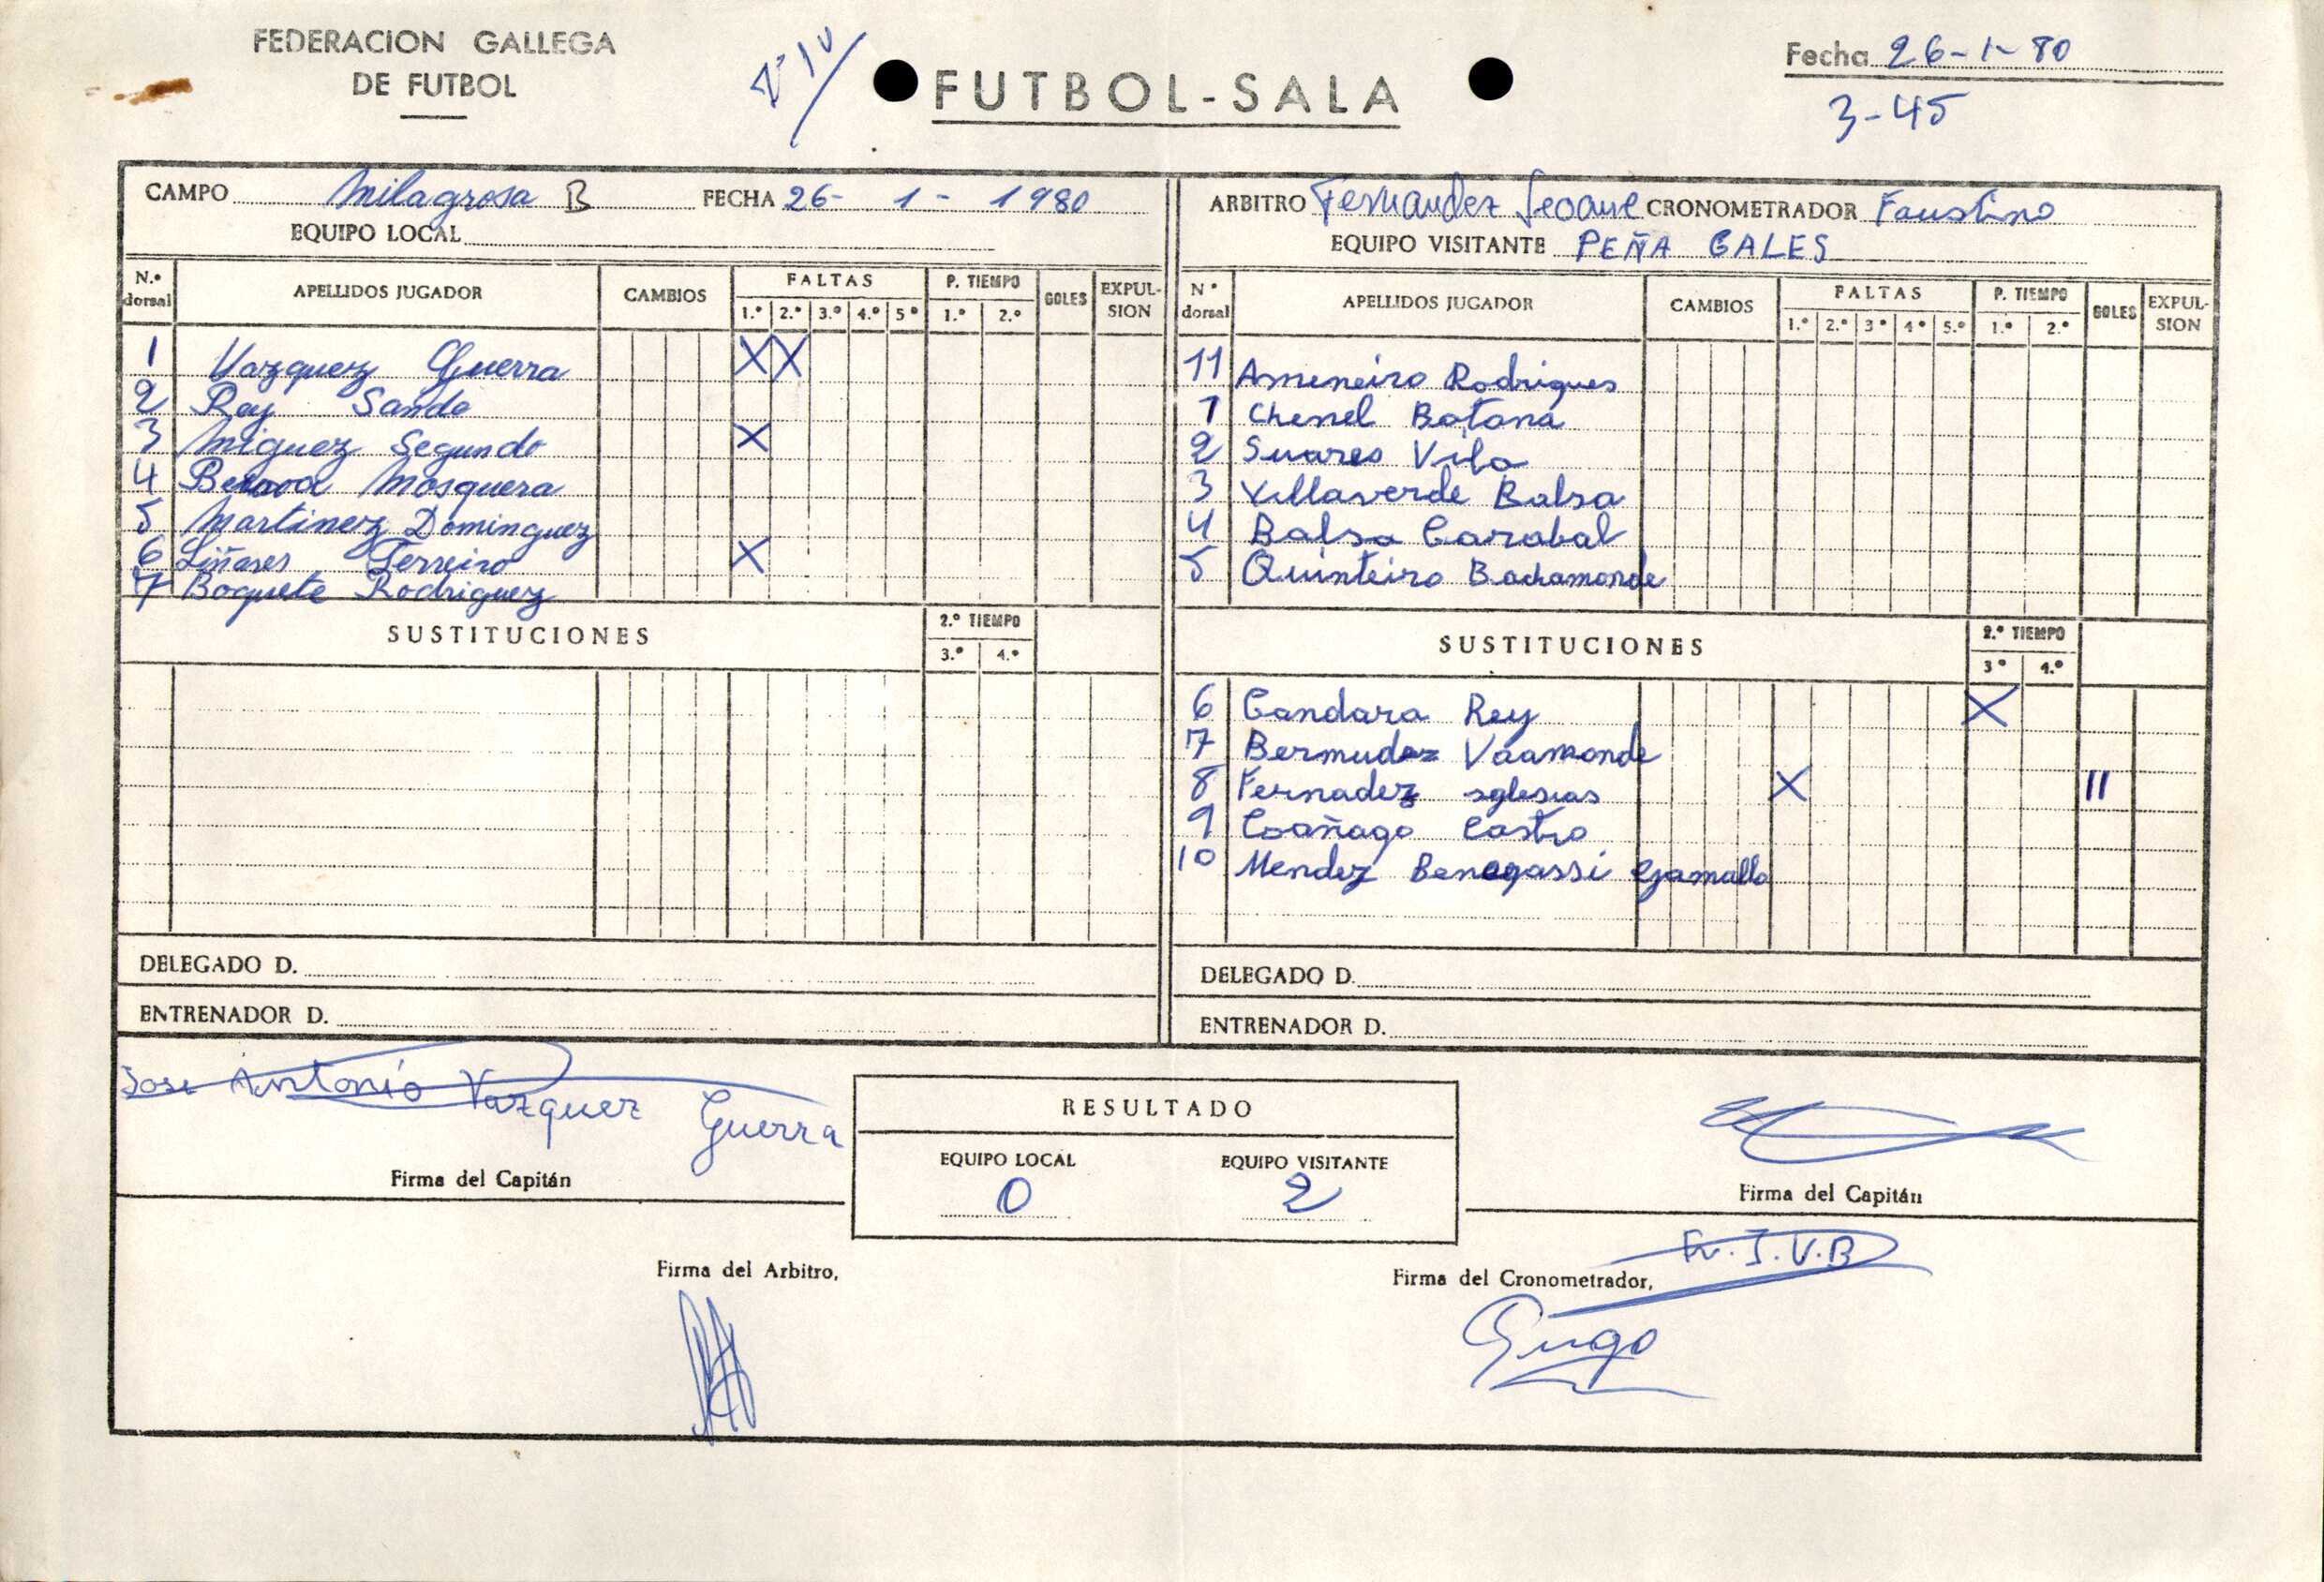 FEDERACION GALLEGA
DE FUTBOL
FUTBOL-SALA
Fecha 26-1-80
3-45
CAMPO Milagrosa B FECHA 26- 1 - 1980
EQUIPO LOCAL
N.º dorsal APELLIDOS JUGADOR CAMBIOS FALTAS 1.ª 2.ª 3.ª 4.ª 5ª P. TIEMPO 1.º 2.º GOLES EXPUL-SION
1 Vazquez Guerra X X
2 Rey Sande
3 Miguez Segundo X
4 Mosquera
5 Martinez Dominguez
6 Liñares Ferreiro X
7 Boquete Rodriguez
SUSTITUCIONES 2.º TIEMPO 3.º 4.º
DELEGADO D.
ENTRENADOR D.
ARBITRO Fernandez Seoane CRONOMETRADOR Faustino
EQUIPO VISITANTE PEÑA GALES
Nº dorsal APELLIDOS JUGADOR CAMBIOS FALTAS 1.ª 2.ª 3ª 4ª 5.ª P. TIEMPO 1.º 2.º GOLES EXPUL-SION
11 Ameneiro Rodrigues
1 Chenel Botana
2 Suares Vila
3 Villaverde Balsa
4 Balsa Carabal
5 Quinteiro Bachamonde
SUSTITUCIONES 2.º TIEMPO 3º 4.º
6 Gandara Rey X
7 Bermudez Vaamonde
8 Fernadez iglesias X II
9 Coañago Castro
10 Mendez Benegassi Gamallo
DELEGADO D.
ENTRENADOR D.
Jose Antonio Vazquez Guerra
Firma del Capitán
RESULTADO
EQUIPO LOCAL EQUIPO VISITANTE
0 2
Firma del Capitán
Firma del Arbitro,
Firma del Cronometrador,